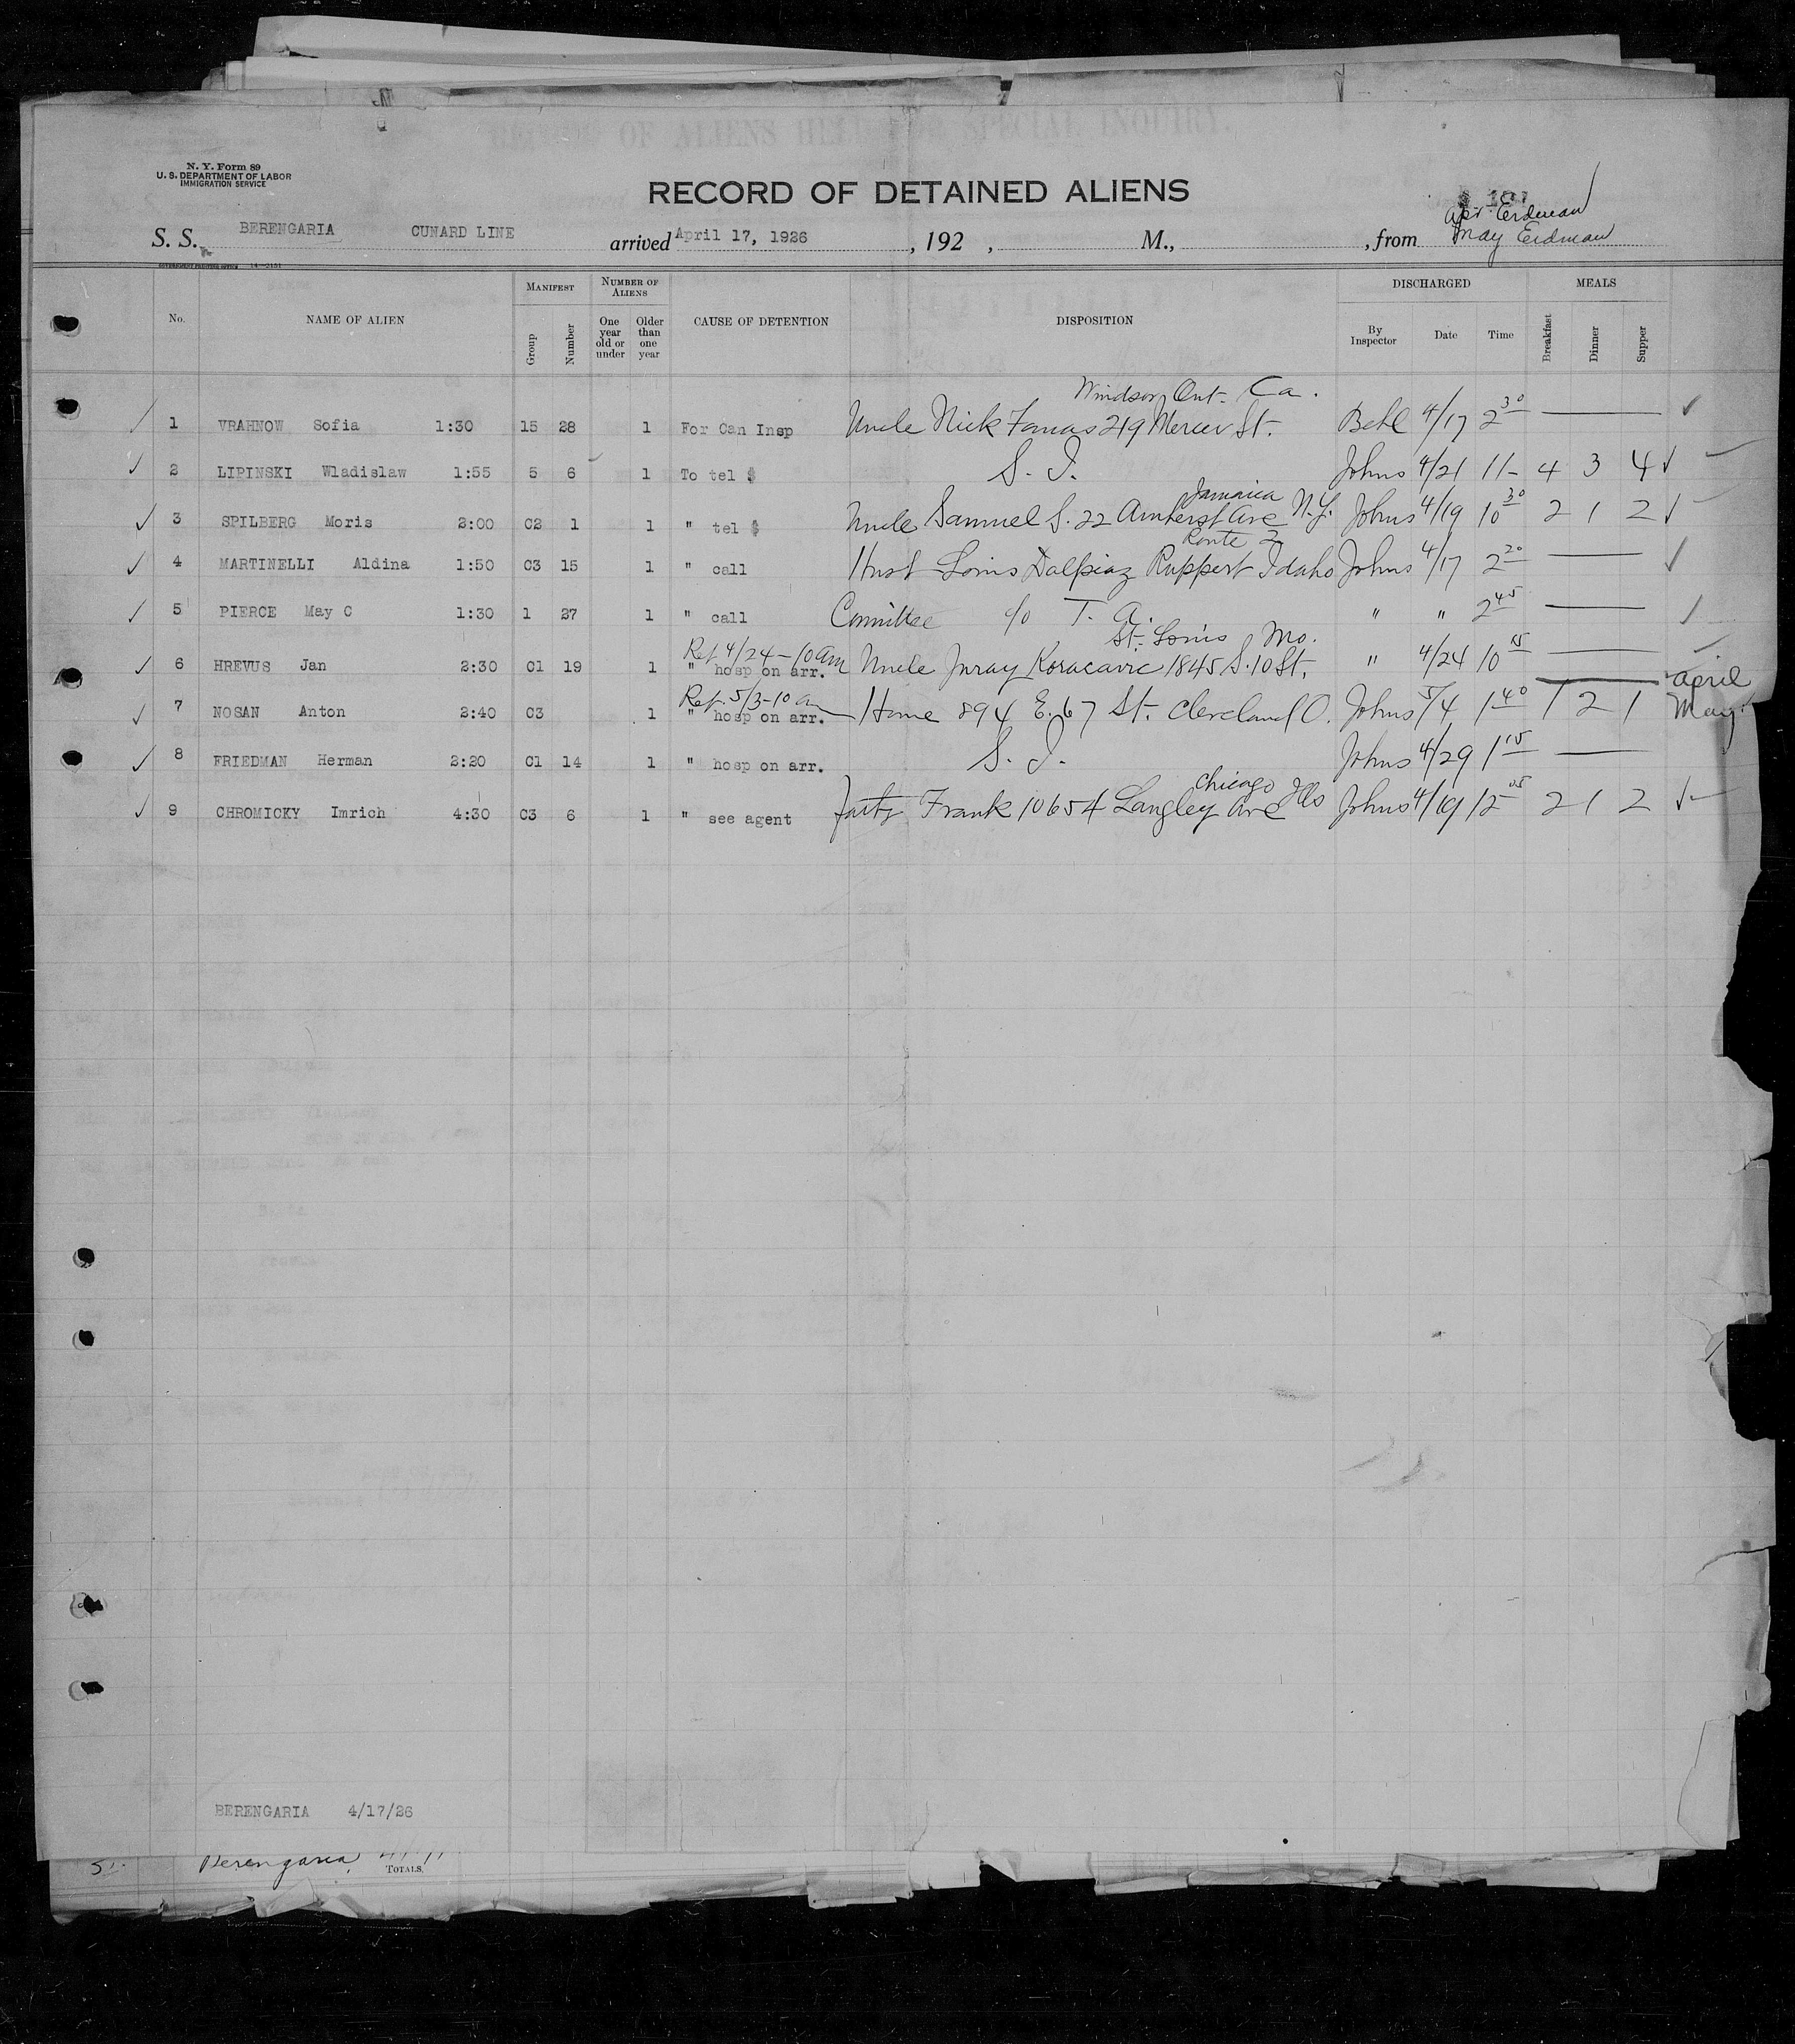 N. Y. Form 89
U. S. DEPARTMENT OF LABOR
IMMIGRATION SERVICE
RECORD OF DETAINED ALIENS
Apr. Erdman
May Erdman
S. S. BERENGARIA CUNARD LINE arrived April 17, 1926, 192 , M., , from
MANIFEST NUMBER OF ALIENS DISCHARGED MEALS
No. NAME OF ALIEN Group Number One year old or under Older than one year CAUSE OF DETENTION DISPOSITION By Inspector Date Time Breakfast Dinner Supper
Windsor, Ont. Ca.
1 VRAHNOW Sofia 1:30 15 28 1 For Can Insp Uncle Nick 219 Mercer St. Behl 4/17 2 30
2 LIPINSKI Wladislaw 1:55 5 6 1 To tel $ S. I. Johns 4/21 11- 4 3 4 ✓
Jamaica
3 SPILBERG Moris 2:00 C2 1 1 " tel $ Uncle Samuel S. 22 Amherst Ave N.Y. Johns 4/19 10 30 2 1 2 ✓
Route 2
4 MARTINELLI Aldina 1:50 C3 15 1 " call Husb Louis Dalpiaz Ruppert Idaho Johns 4/17 2 20 ✓
5 PIERCE May C 1:30 1 27 1 " call Committee c/o T. A. " " 2 45 ✓
Ref 4/24-10 am St. Louis Mo.
6 HREVUS Jan 2:30 C1 19 1 " hosp on arr. Uncle Juray Koracavic 1845 S. 10 St. " 4/24 10 15
April
Ref. 5/3-10 am
7 NOSAN Anton 2:40 C3 1 " hosp on arr. Home 894 E. 67 St. Cleveland O. Johns 5/4 1 40 1 2 1 May
8 FRIEDMAN Herman 2:20 C1 14 1 " hosp on arr. S. I. Johns 4/29 1 15
Chicago Ills
9 CHROMICKY Imrich 4:30 C3 6 1 " see agent Frank 10654 Langley Ave Johns 4/19 12 05 2 1 2 ✓
BERENGARIA 4/17/26
Berengaria
TOTALS,